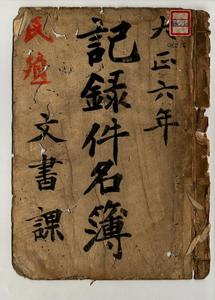 大正六年
記録件名簿
文書課